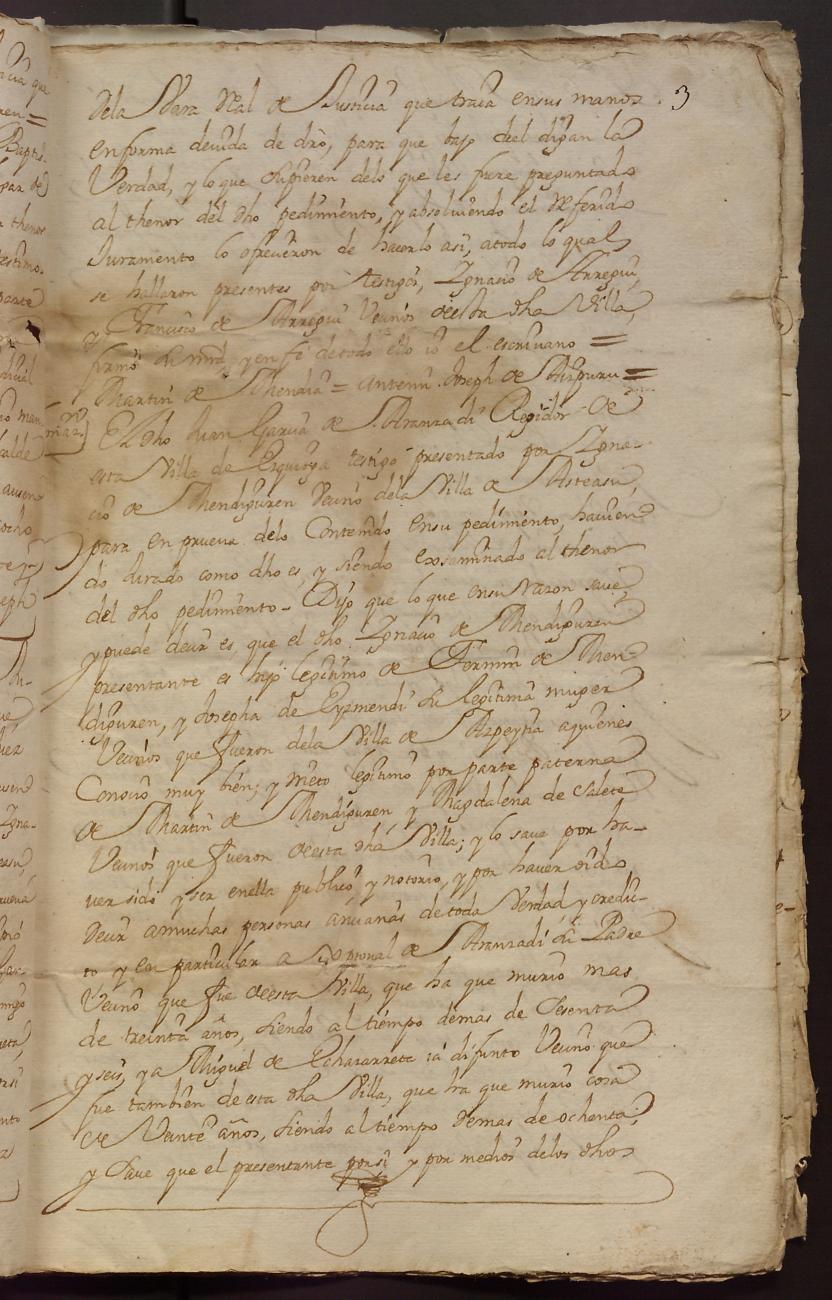 3
dela Vara Rl de Justicia que traia ensus manos
enforma deuida de dro, para que bajo deel digan la
Verdad, y lo que supieren delo que les fuere preguntado
al thenor del dho pedimiento, y absoluiendo el referido
Juramento lo ofrecieron de hacerlo asi, atodo lo qual
se hallaron presentes por testigos, Ygnacio de Arregui,
y Francisco de Arregui Vecinos desta dha Villa,
firmó su mrd, y en fe detodo ello io el escriuano =
Martin de Mendia = antemi Joseph de Aizpuru =
El dho Juan Garcia de Aranzadi Regidor de
esta Villa de Ezquioga testigo presentado por Ygna-
cio de Mendiguren Vecino dela Villa de Asteasu,
para en prueua delo Contenido ensu pedimiento, hauien
do Jurado como dho es, y siendo exsaminado al thenor
del dho pedimiento - Dijo que lo que ensu razon saue,
y puede decir es, que el dho Ygnacio de Mendiguren
presentante es hijo legitimo de Fermin de Men-
diguren, y Josepha de Eyzmendi su legitima muger
Vecinos que fueron dela Villa de Azpeytia aquienes
Conocio muy bien; y Nieto legitimo por parte paterna
de Martin de Mendiguren, y Magdalena de Zalete
Vecinos que fueron desta dha Villa; y lo saue por ha-
uer sido y ser enella publico, y notorio, y por hauer oido
decir amuchas personas ancianas detoda Verdad, y credi-
to y en particular a de Aranzadi su Padre
Vecino que fue desta Villa, que ha que murio mas
de treinta años, siendo al tiempo demas de Sesenta
y seis, y a Miguel de Echazarreta ia difunto Vecino que
fue tambien de esta dha Villa, que ha que murio cosa
de Veinte años, siendo al tiempo demas de ochenta,
y Saue que el presentante porsi y por medios delos dhos